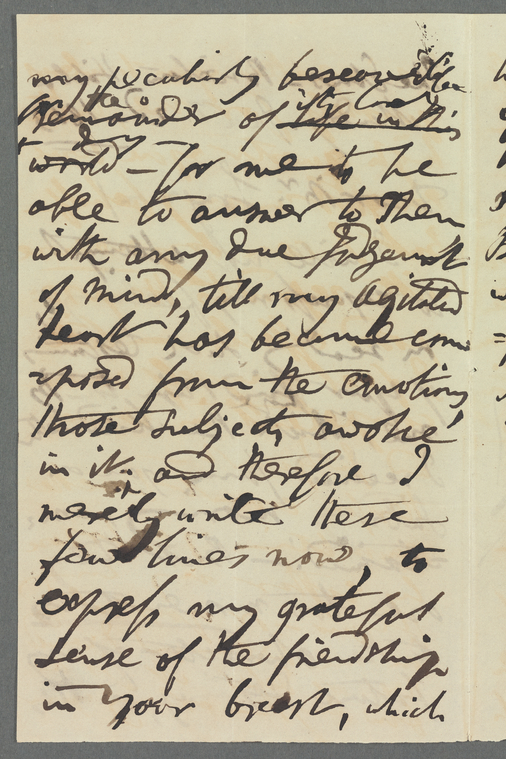 my peculiarly
the
Remainder of life in this
world — for me to be
able to answer to them
with any due Judgment
of Mind, till my agitated
heart has become com
=posed from the emotions
those subjects awoke'
in it; and therefore I
merely write these
few lines now, to
express my grateful
sense of the friendship
in your breast, which